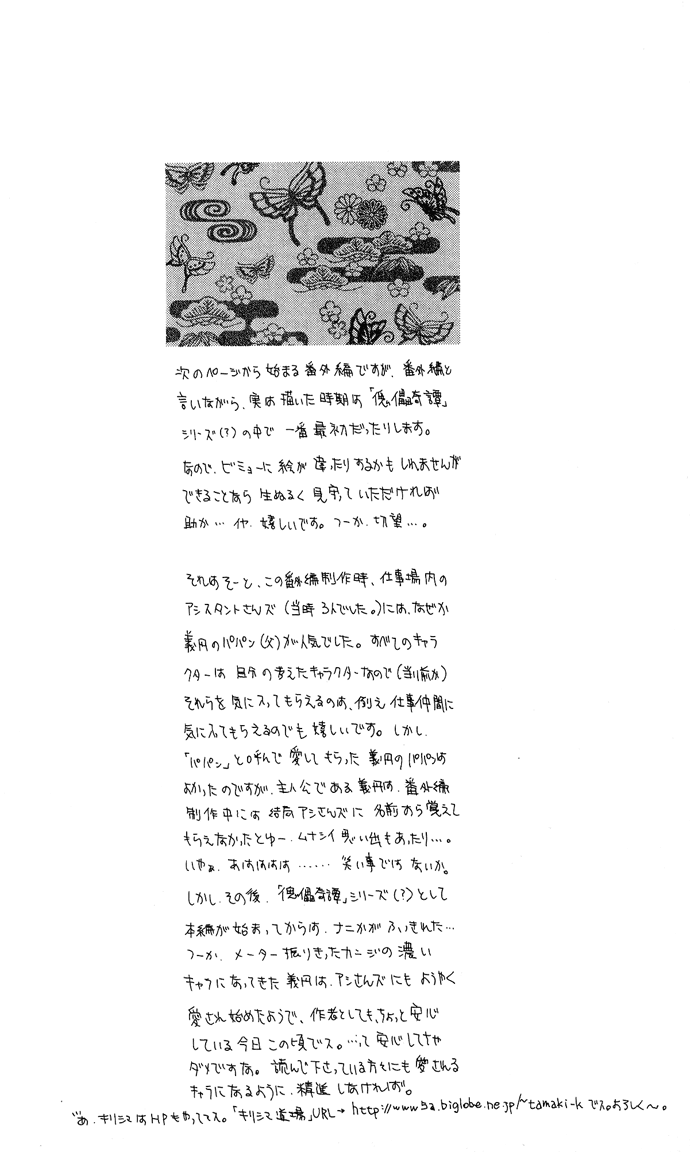 次のページから始まる番外編ですが、番外編と
言いながら、実は描いた時期は「傀儡奇譚」
シリーズ(?)の中で一番最初だったりします。
なので、ビミョーに絵が違ったりするかもしれませんが
できることなら生ぬるく見守っていただければ
助か…イヤ、嬉しいです。つーか、切望…。
それはそーと、この番外編制作時、仕事場内の
アシスタントさんズ(当時3人でした。)には、なぜか
義円のパパン(父)が人気でした。すべてのキャラ
クターは自分の考えたキャラクターなので(当り前か)
それらを気に入ってもらえるのは、例え仕事仲間に
気に入ってもらえるのでも嬉しいです。しかし、
「パパン」と呼んで愛してもらった義円のパパンは
よかったのですが、主人公である義円は、番外編
制作中には結局アシさんズに名前すら覚えて
もらえなかったとゆー、ムナシイ思い出もあったり…。
いやぁ、あはははは……笑い事ではないか。
しかし、その後、「傀儡奇譚」シリーズ(?)として
本編が始まってからは、ナニかがふっきれた…
つーか、メーター振りきったカンジの濃い
キャラになってきた義円は、アシさんズにもようやく
愛され始めたようで、作者としても、ちょっと安心
している今日この頃でス。…って安心してちゃ
ダメですな。読んで下さっている方々にも愛される
キャラになるように、精進しなければ。
あ、キリシマはHPもやってマス。「キリシマ道場」URL→http://www5a.biglobe.ne.jp/~tamaki-kでス。よろしく〜。